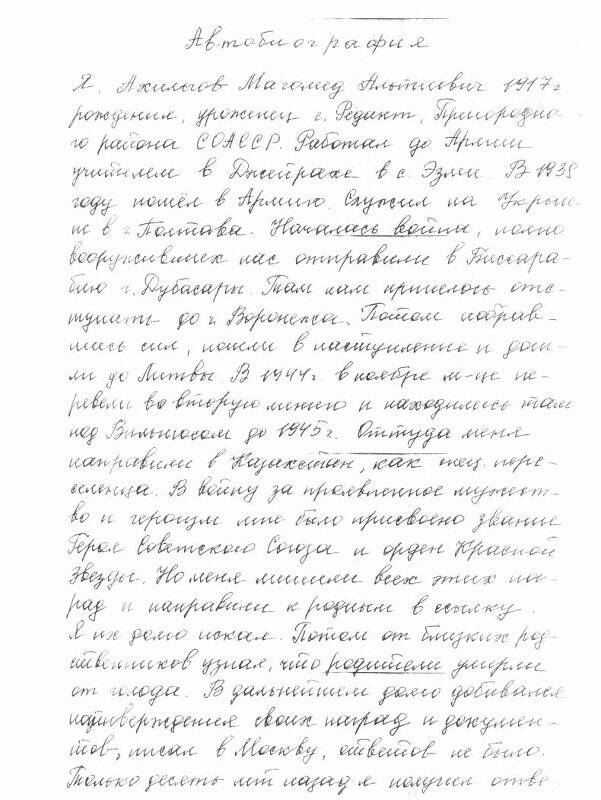 Автобиография
Я, Ахильгов Магомед Альтиевич 1917 г.
рождения, уроженец с. Редант, Пригородно-
го района СОАССР. Работал до Армии
учителем в Джейрахе в с. Эзми. В 1939
году пошёл в Армию. Служил на Украи-
не в г. Полтава. Началась война, полно
вооружившись нас отправили в Бессара-
бию г. Дубасары. Там нам пришлось отс-
тупать до г. Воронежа. Потом набрав-
шись сил, пошли в наступление и дош-
ли до Литвы. В 1944 г. в ноябре м-це пе-
ревели во вторую линию и находились там
под Вильнюсом до 1945 г. Оттуда меня
направили в Казахстан, как спец. пере-
селенца. В войну за проявленное мужест-
во и героизм мне было присвоено звание
Героя Советского Союза и орден Красной
Звезды. Но меня лишили всех этих наг-
рад и направили к родным в ссылку.
Я их долго искал. Потом от близких род-
ственников узнал, что родители умерли
от голода. В дальнейшем долго добивался
подтверждения своих наград и докумен-
тов, писал в Москву, ответов не было.
Только десять лет назад я получил отве-